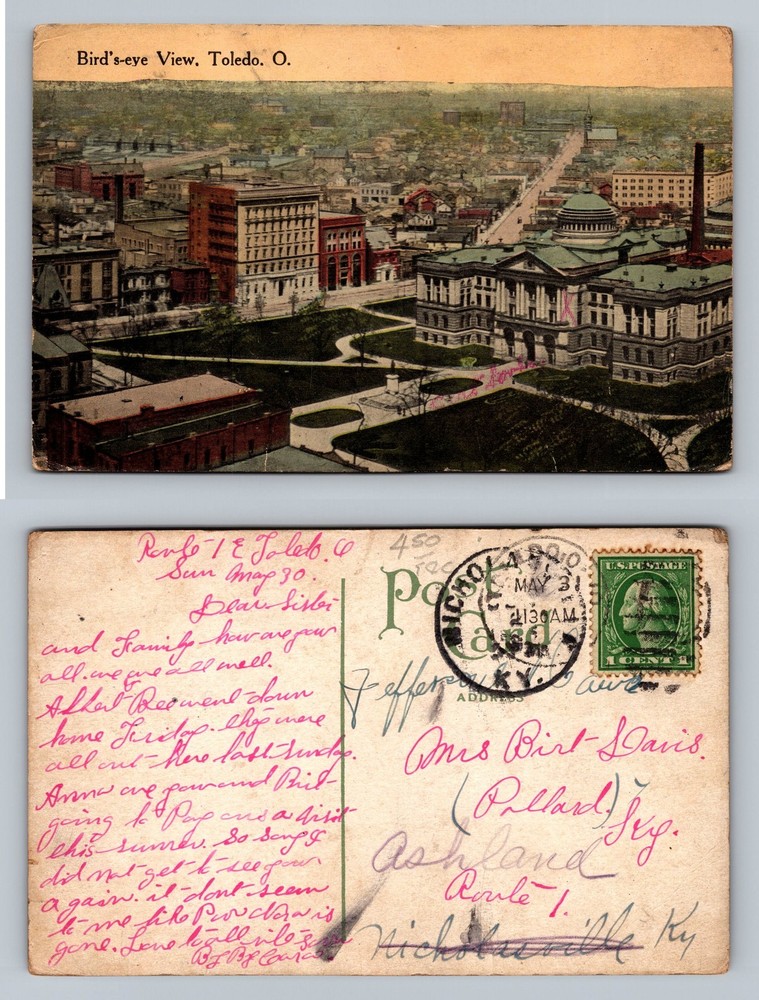 Bird's-eye View, Toledo. O.
Route 1 E Toledo. O
Sun May 30.
Dear Sister
and Family how are you
all. we are all well.
Albert Bee went down
home Friday. they were
all out here last Sunday.
Anna are you and Birt
going to Pay us a Visit
this summer. So sorry I
did not get to see you
again. it dont seem
to me like Poor Nora is
gone. Love to all write soon
By By
4 50
Post
Card
ADDRESS
NICHOLA
MAY 31
1130AM
KY.
U.S. POSTAGE
1 CENT 1
Mrs Birt Davis.
(Pollard) Ky.
Ashland
Route 1.
Nicholasville Ky